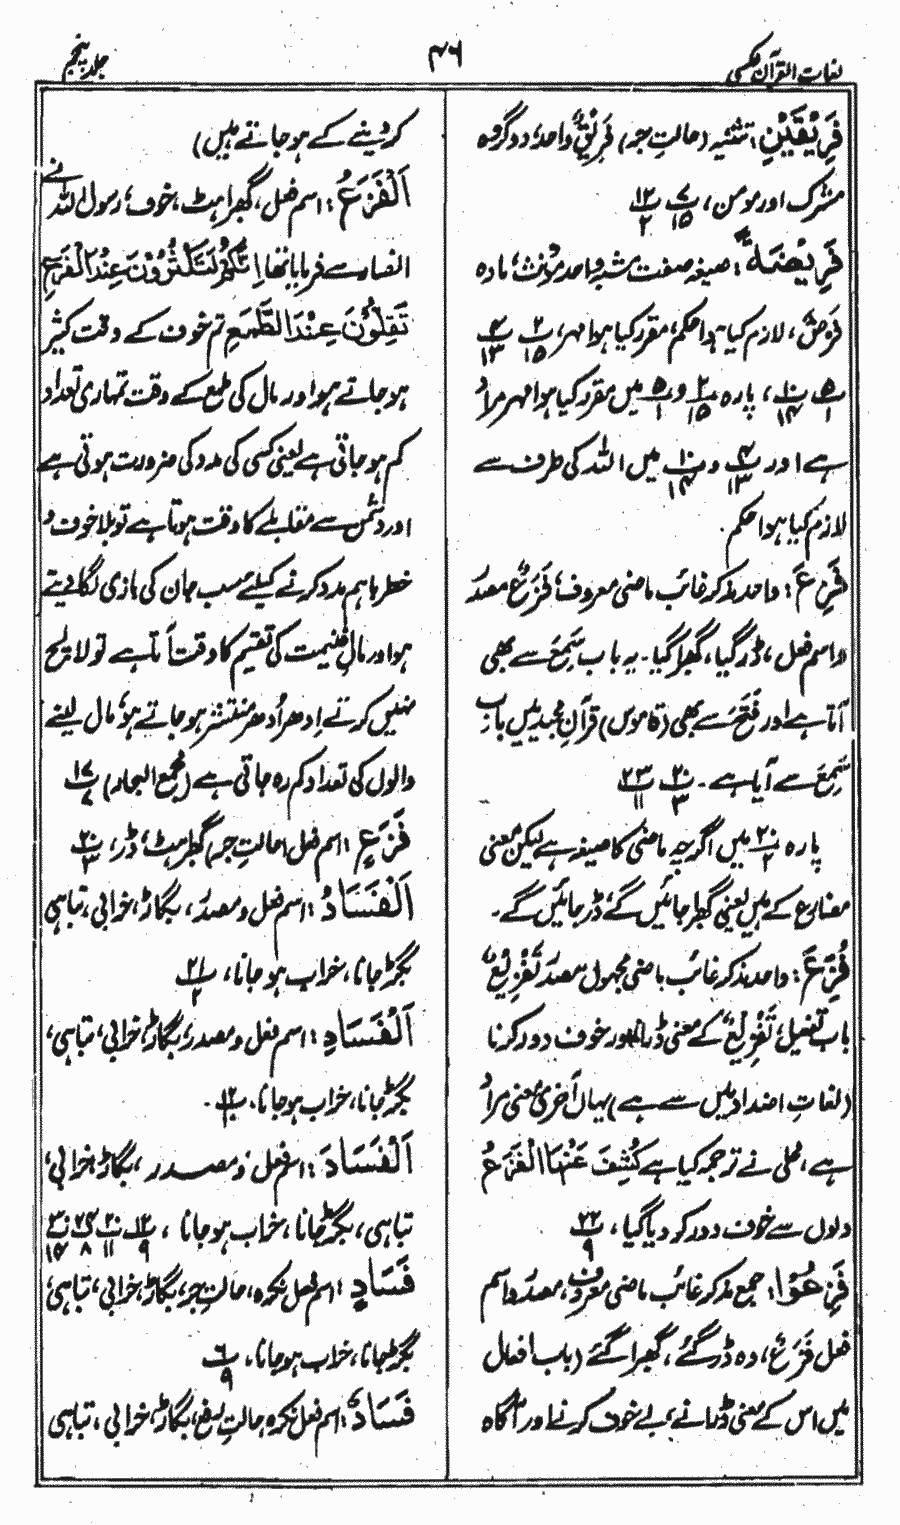 لغات القرآن عکسی
۴۶
جلد پنجم
فَرِیْقَیْنِ: تثنیہ (حالتِ جر) فَرِیْقٌ واحد، دو گروہ
مشرک اور مومن، پ۷/۱۵ پ۱۲/۲
فَرِیْضَۃً: صیغہ صفت مشبہ واحد مؤنث، مادہ
فَرْضٌ، لازم کیا ہوا حکم، مقرر کیا ہوا مہر، پ۲/۱۵ پ۴/۱۳
پ۵/۱ پ۱۰/۱۴، پارہ پ۲/۱۵ و پ۵/۱ میں مقرر کیا ہوا مہر مراد
ہے اور پ۴/۱۳ و پ۱۰/۱۴ میں اللہ کی طرف سے
لازم کیا ہوا حکم۔
فَزِعَ: واحد مذکر غائب ماضی معروف، فَزَعٌ مصدر
واسم فعل، ڈر گیا، گھبرا گیا۔ یہ باب سَمِعَ سے بھی
آتا ہے اور فَتَحَ سے بھی (قاموس) قرآن مجید میں باب
سَمِعَ سے آیا ہے۔ پ۲۰/۳ پ۲۳/۱۱
پارہ پ۲۰/۳ میں اگرچہ ماضی کا صیغہ ہے لیکن معنی
مضارع کے ہیں یعنی گھبرا جائیں گے، ڈر جائیں گے۔
فُزِّعَ: واحد مذکر غائب ماضی مجہول مصدر تَفْزِیْعٌ
باب تفعیل، تَفْزِیْعٌ کے معنی ڈرانا اور خوف دور کرنا
(لغاتِ اضداد میں سے ہے) یہاں آخری معنی مراد
ہے، محلی نے ترجمہ کیا ہے کُشِفَ عَنْہَا الْفَزَعُ
دلوں سے خوف دور کر دیا گیا، پ۲۲/۹
فَزِعُوْا: جمع مذکر غائب ماضی معروف، مصدر واسم
فعل فَزَعٌ، وہ ڈر گئے، گھبرا گئے (باب افعال
میں اس کے معنی ڈرانے، بے خوف کرنے اور آگاہ
کر دینے کے ہو جاتے ہیں)
اَلْفَزَعُ: اسم فعل، گھبراہٹ، خوف، رسول اللہ نے
انصار سے فرمایا تھا اِنَّکُمْ لَتَکْثُرُوْنَ عِنْدَ الْفَزَعِ
تَقِلُّوْنَ عِنْدَ الطَّمَعِ تم خوف کے وقت کثیر
ہو جاتے ہو اور مال کی طمع کے وقت تمہاری تعداد
کم ہو جاتی ہے یعنی کسی کی مدد کی ضرورت ہوتی ہے
اور دشمن سے مقابلے کا وقت ہوتا ہے تو بلا خوف و
خطر باہم مدد کرنے کیلئے سب جان کی بازی لگا دیتے
ہو اور مالِ غنیمت کی تقسیم کا وقت آتا ہے تو لالچ
نہیں کرتے اِدھر اُدھر منتشر ہو جاتے ہو، مال لینے
والوں کی تعداد کم رہ جاتی ہے (مجمع البحار) پ۱۷/۷
فَزَعٍ: اسم فعل (حالتِ جر) گھبراہٹ، ڈر، پ۲۰/۳
اَلْفَسَادُ: اسم فعل و مصدر، بگاڑ، خرابی، تباہی
بگڑ جانا، خراب ہو جانا، پ۲۱/۲
اَلْفَسَادِ: اسم فعل و مصدر، بگاڑ، خرابی، تباہی،
بگڑ جانا، خراب ہو جانا، پ۱۲۔
اَلْفَسَادَ: اسم فعل و مصدر، بگاڑ، خرابی،
تباہی، بگڑ جانا، خراب ہو جانا، پ۱۲/۹ پ۲۰/۱۱ پ۲۴/۸ پ۳۰/۱۴
فَسَادٍ: اسم فعل نکرہ، حالتِ جر، بگاڑ، خرابی، تباہی،
بگڑ جانا، خراب ہو جانا، پ۶/۹
فَسَادٌ: اسم فعل نکرہ حالتِ رفع، بگاڑ، خرابی، تباہی